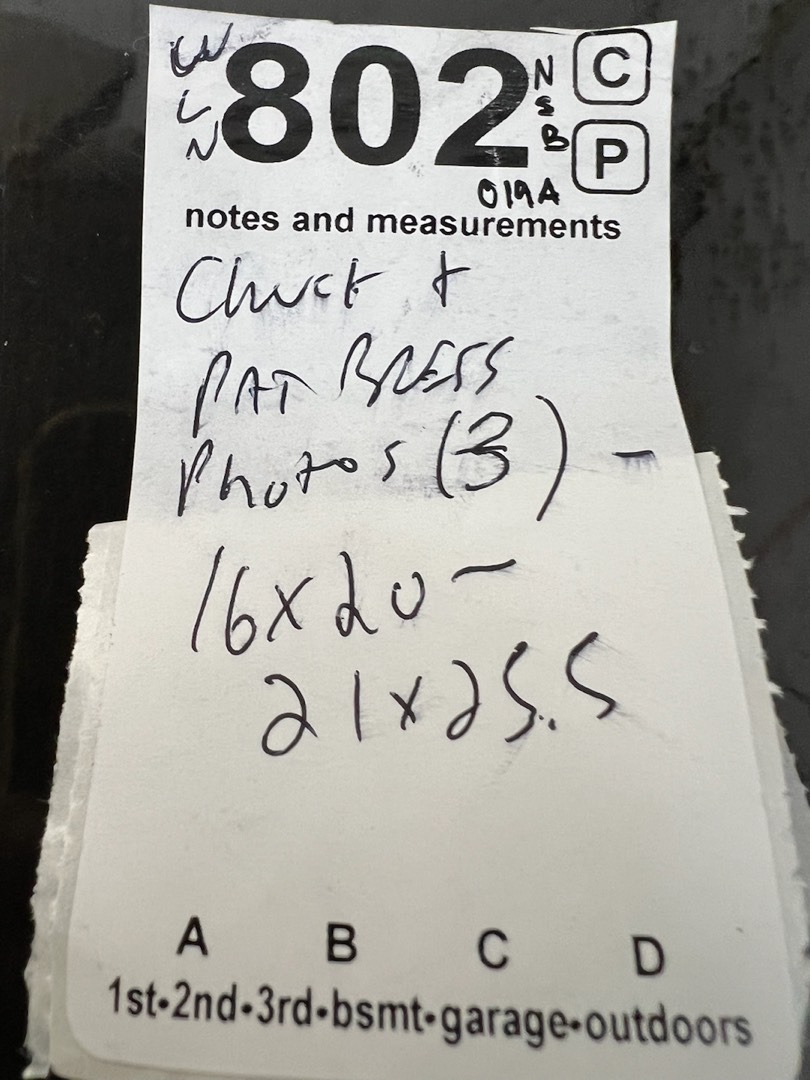 WLN 802 NSB C
P
019A
notes and measurements
Chuck +
PAT BRESS
Photos (3) -
16x20 -
21x25.5
A B C D
1st•2nd•3rd•bsmt•garage•outdoors